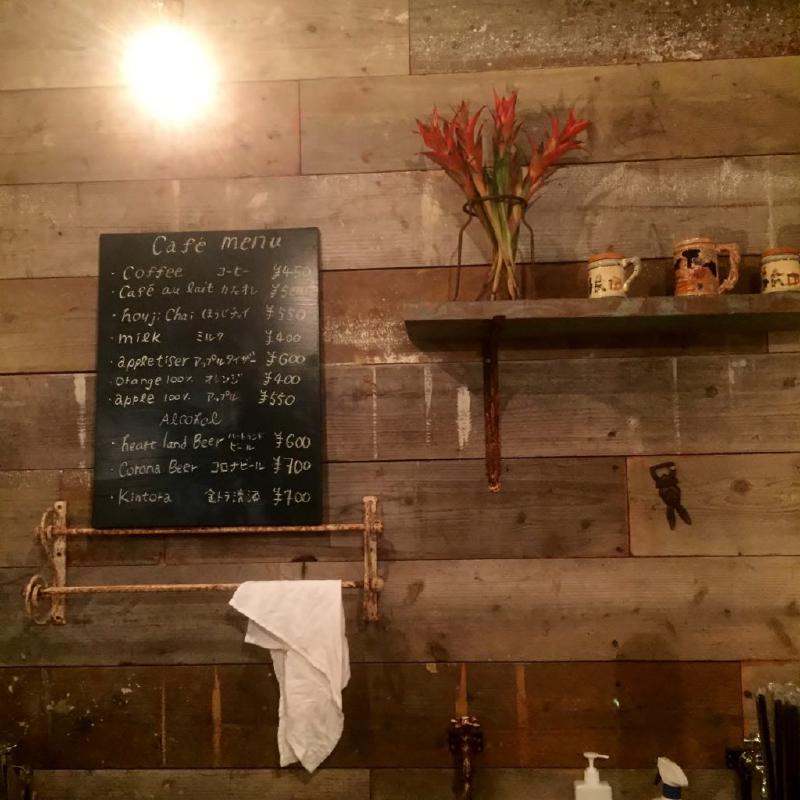 Café menu
・Coffee コーヒー ¥450
・Café au lait カフェオレ
・houji Chai ほうじチャイ ¥550
・milk ミルク ¥400
・appletiser アップルタイザー ¥600
・Orange 100% オレンジ ¥400
・apple 100% アップル ¥550
Alcohol
・heart land Beer ハートランドビール ¥600
・Corona Beer コロナビール ¥700
・Kintora 金トラ清酒 ¥700